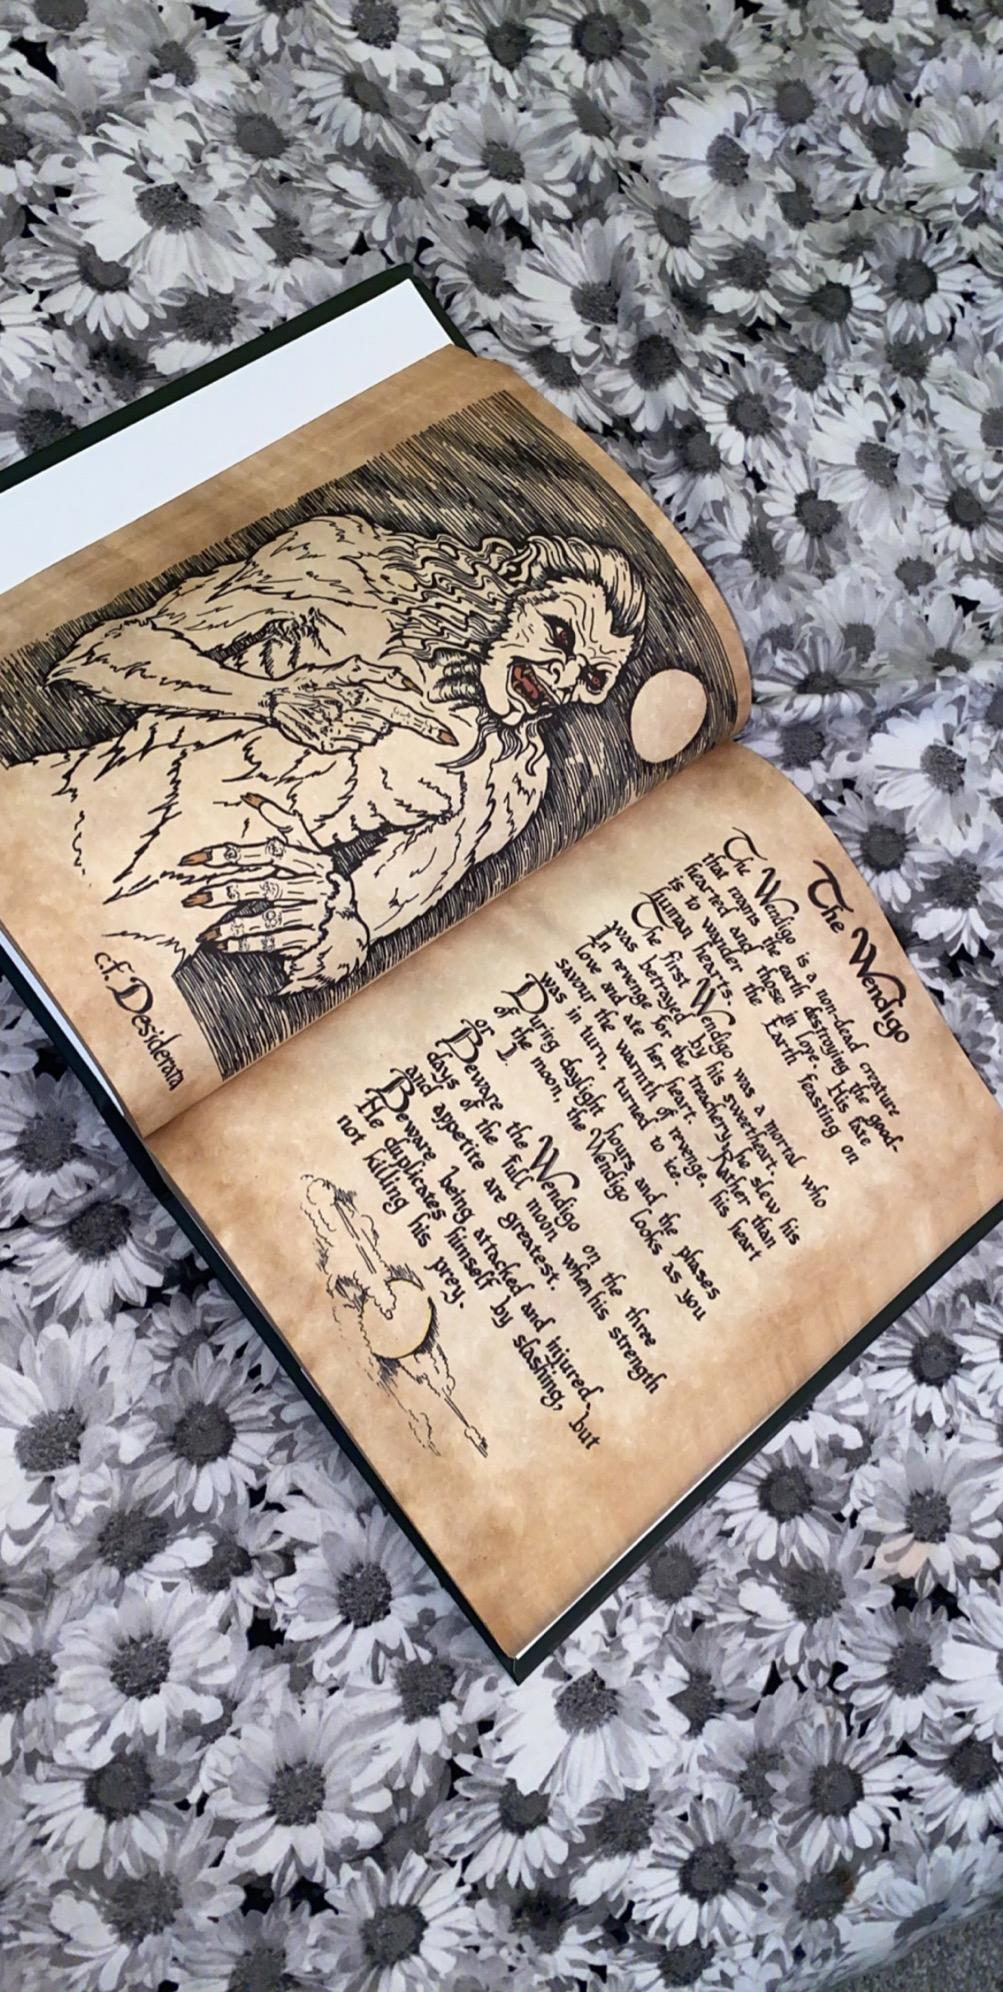 cf. Desiderata
The Wendigo
The Wendigo is a non-dead creature
that roams the earth destroying the good-
hearted and those in love. His fate
is to wander the Earth feasting on
human hearts.
The first Wendigo was a mortal who
was betrayed by his sweetheart.
In revenge for the treachery, he slew his
love and ate her heart. Rather than
savour the warmth of revenge, his heart
was in turn, turned to ice.
During daylight hours and the phases
of the moon, the Wendigo looks as you
or I.
Beware the Wendigo on the three
days of the full moon when his strength
and appetite are greatest.
Beware being attacked and injured, but
He duplicates himself by slashing,
not killing his prey.